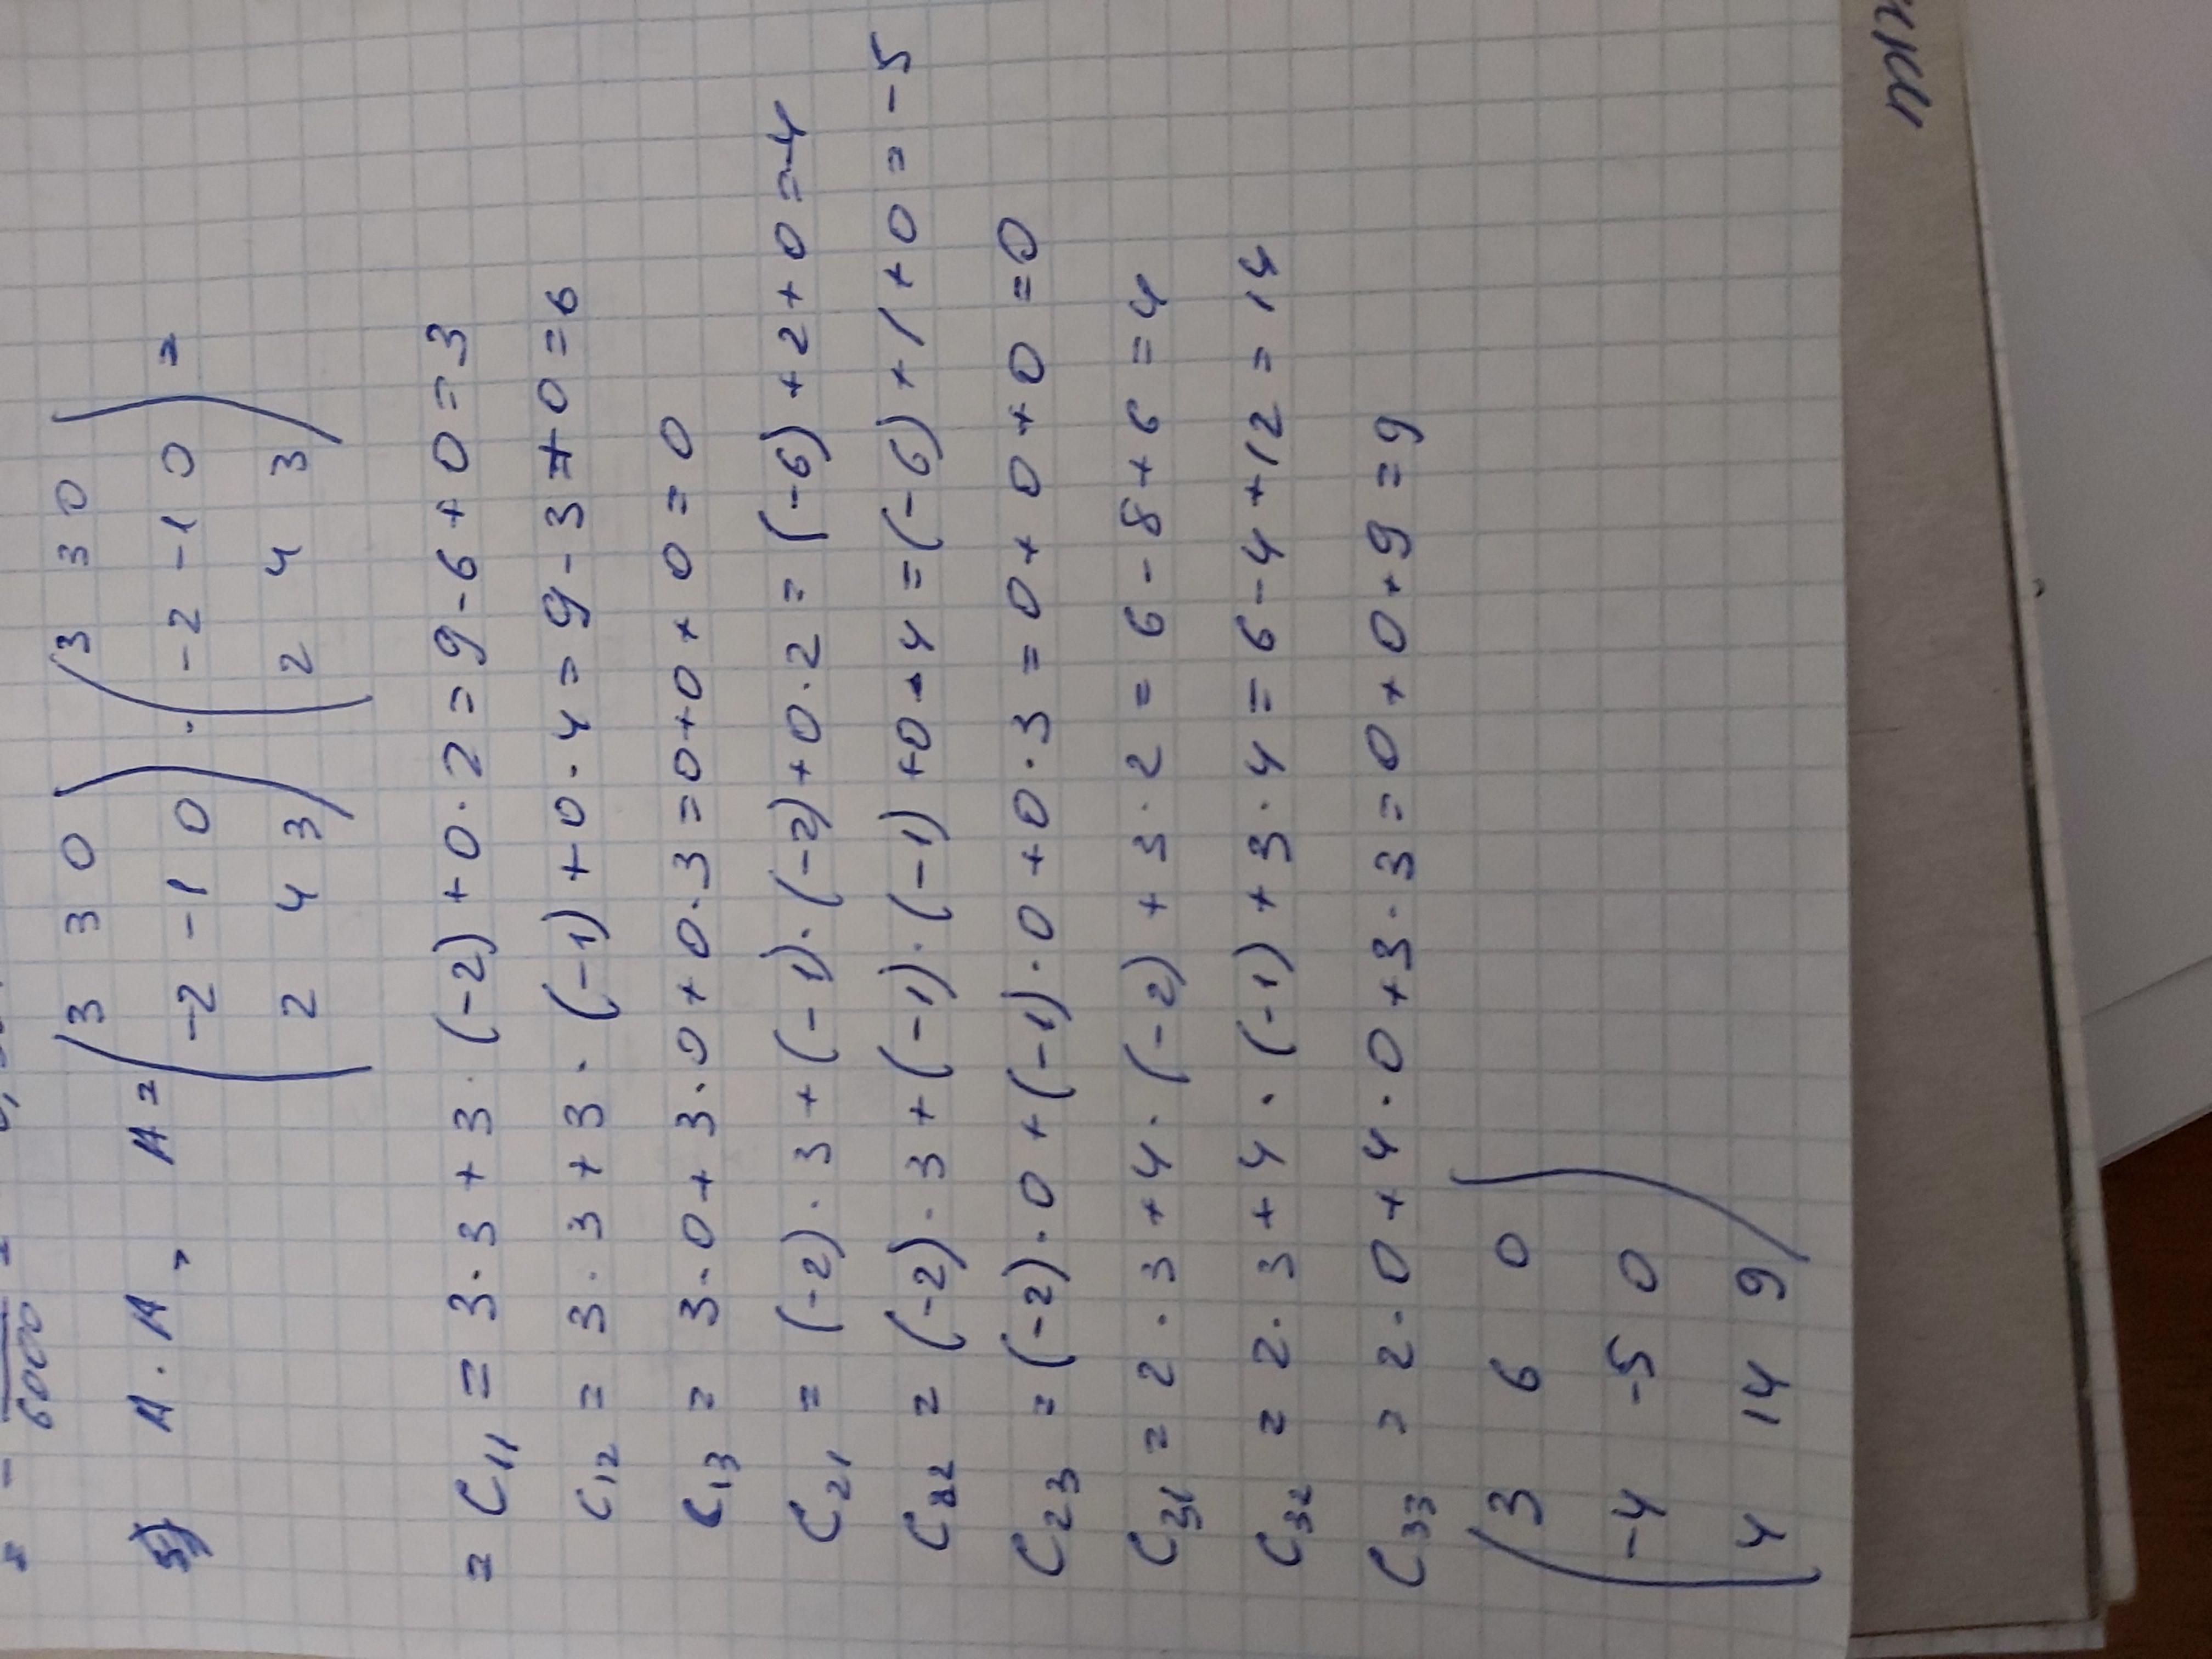 = - 6000
5) A · A, A = (3 3 0) · (3 3 0)
(-2 -1 0) · (-2 -1 0) =
(2 4 3) (2 4 3)
= C11 = 3·3+3·(-2)+0·2=9-6+0=3
C12 = 3·3+3·(-1)+0·4=9-3+0=6
C13 = 3·0+3·0+0·3=0+0+0=0
C21 = (-2)·3+(-1)·(-2)+0·2=(-6)+2+0=-4
C22 = (-2)·3+(-1)·(-1)+0·4=(-6)+1+0=-5
C23 = (-2)·0+(-1)·0+0·3=0+0+0=0
C31 = 2·3+4·(-2)+3·2=6-8+6=4
C32 = 2·3+4·(-1)+3·4=6-4+12=14
C33 = 2·0+4·0+3·3=0+0+9=9
(3 6 0)
(-4 -5 0)
(4 14 9)